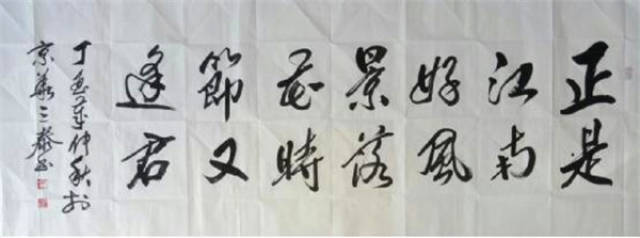 正是
江南
好風
景落
花時
節又
逢君
丁酉年仲秋於
京華三泰书